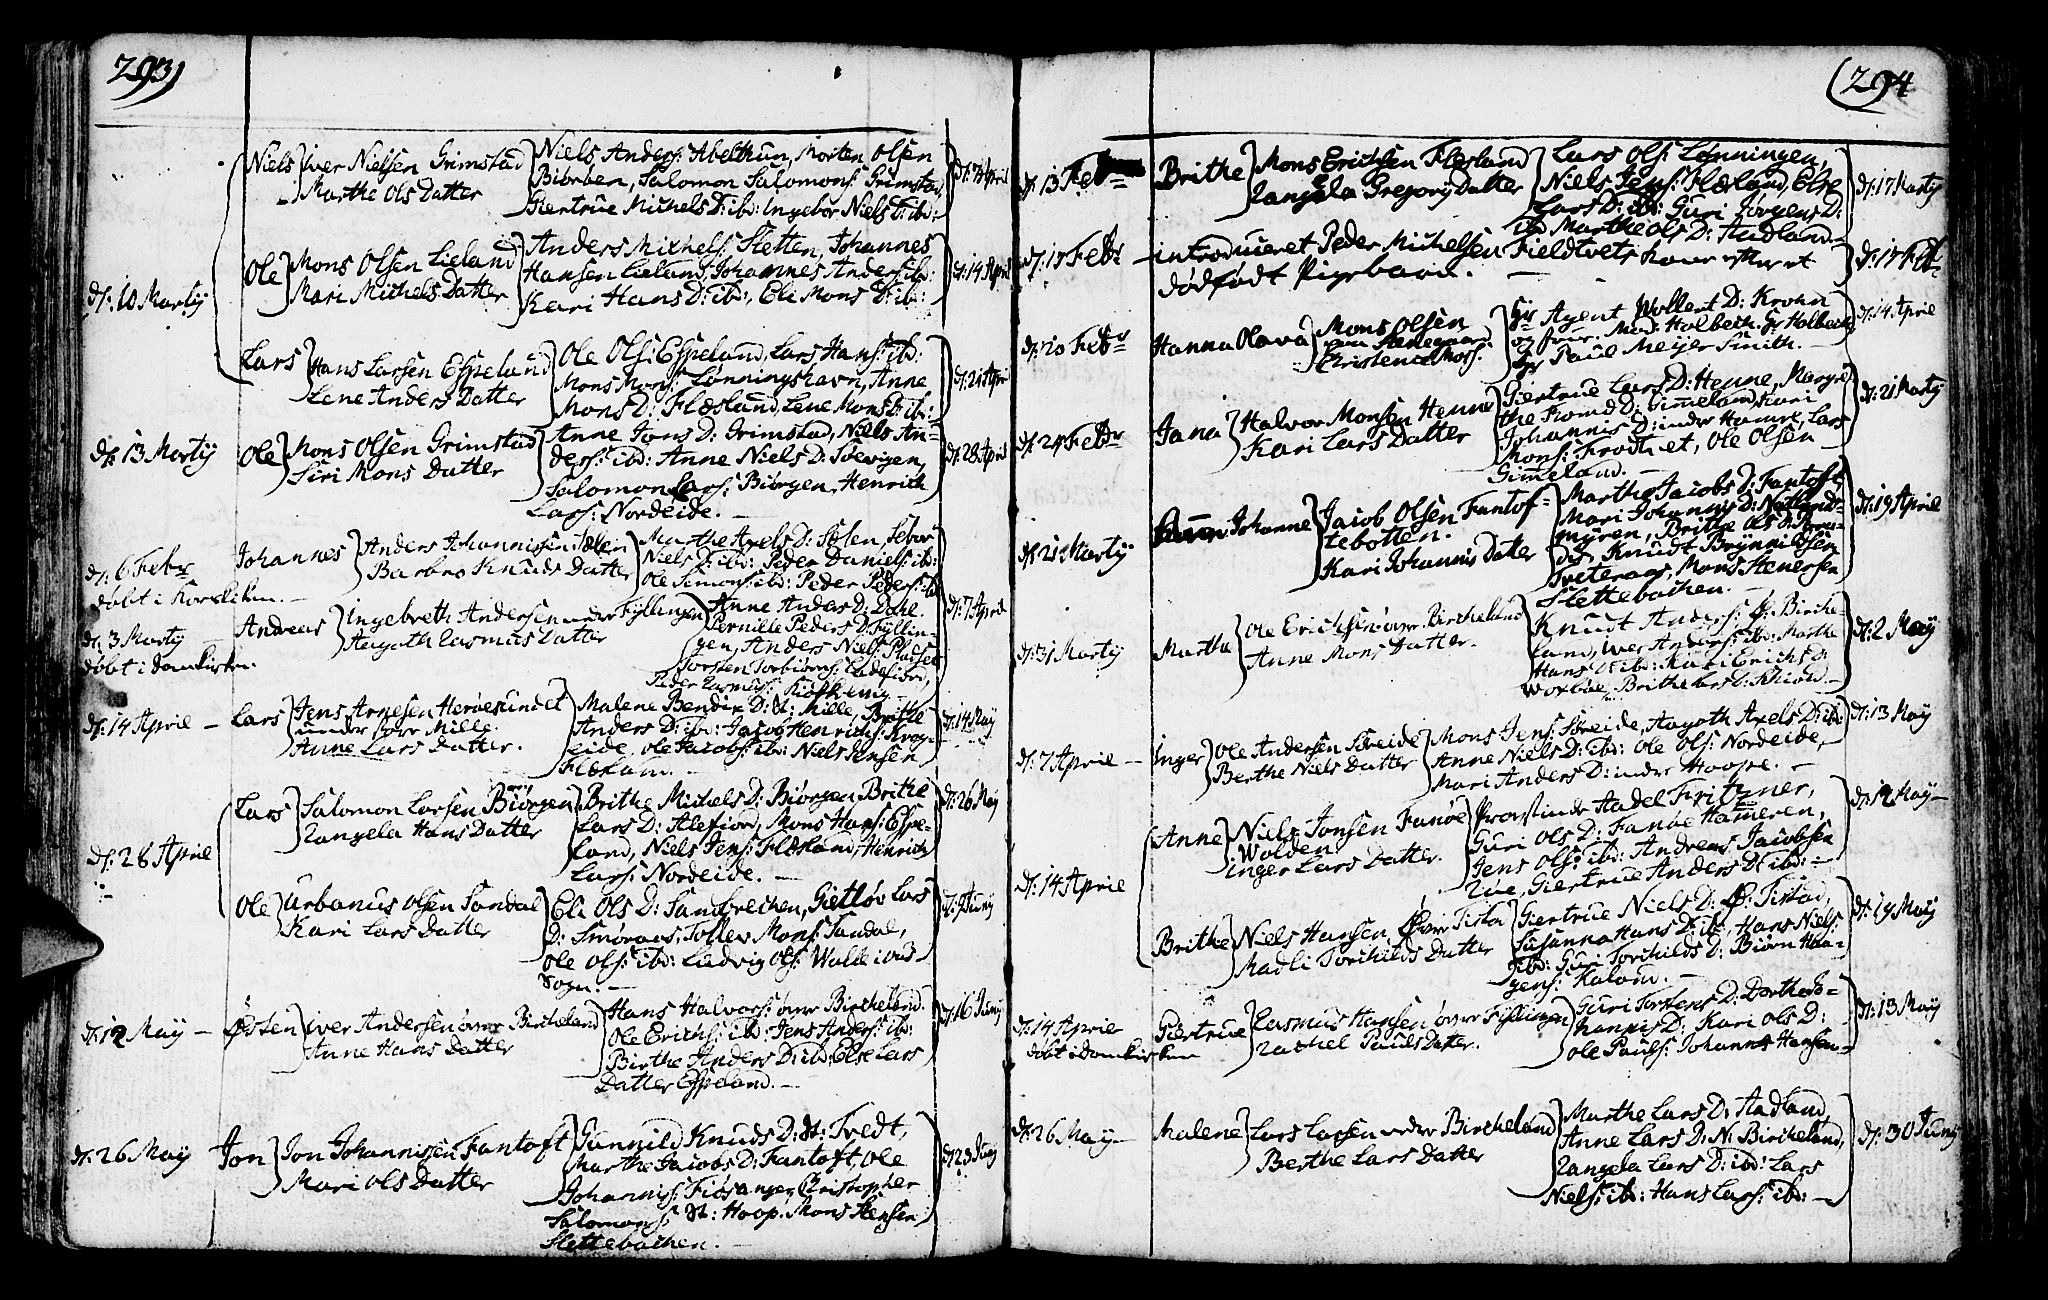 293)
d: 10 Martÿ
Niels Iver Nielsen Grimstad
Marthe Ols Datter
Niels Anders: Abelthun, Morten Olsen
Biørben, Salomon Salomons: Grimstad,
Giertrue Michels D: ibd: Ingebor Niels D: ibd:
April
Ole Mons Olsen Lieland
Mari Michels Datter
Anders Michels: Sletten, Johannes
Hansen Lieland, Johannes Anders: ibd:
Kari Hans D: ibd:, Eli Mons D: ibd:
d: 14 April
Lars Hans Larsen Espeland
Lene Anders Datter
Ole Ols: Espeland, Lars Hans: ibd:
Mons Mons: Lønningshavn, Anne
Mons D: Flæsland, Lene Mons D: ibd:
d: 21 April
d: 13 Martÿ
Ole Mons Olsen Grimstad
Siri Mons Datter
Anne Jons D: Grimstad, Niels An-
ders: ibd: Anne Niels D: Søevigen,
Salomon Lars: Biørgen, Henrich
Lars: Nordeide. –
d: 28 April
d: 6 Febr
døbt i Korskirken. –
Johannes Anders Johannissen Sælen
Barbro Knuds Datter
Marthe Axels D: Sælen, Sebor
Niels D: ibd: Peder Daniels: ibd:
Ole Simons: ibd: Peder Peders: ibd
d: 3 Martÿ
døbt i domkirken.
Andreas Ingebreth Andersen neder Fyllingen
Aagoth Rasmus Datter
Anne Anders D: Dahl
Pernille Peders D: Fyllin-
gen, Anders Niels: Pladsen
Torsten Torbiørns:
Peder Rasmus:
d: 7 April
d: 14 April –
Lars Jens Arnesen Herøesundet
under Mille.
Anne Lars Datter.
Malene Bendix D: St: Mille, Brithe
Anders D: ibd: Jacob Henrichs: Krog-
eide, Ole Jacobs: ibd: Niels Jensen
Flæsland. –
d: 14 Maÿ
d: 28 April
Lars Salomon Larsen Biørgen
Rangela Hans Datter
Brithe Michels D: Biørgen, Brithe
Lars D: Alefiord, Mons Hans: Espe-
land, Niels Jens: Flæsland, Henrich
Lars: Nordeide. –
d: 26 Maÿ
Ole Urbanus Olsen Sandal
Kari Lars Datter
Eli Ols D: Sandbrechen, Gietløv Lars
D: Smøraas, Tollev Mons: Sandal,
Ole Ols: ibd: Ludvig Ols:
Sogn. –
d: 9 Junÿ
d: 12 Maÿ –
Østen Iver Andersen øvre Bircheland
Anne Hans Datter
Hans Halvors: øvre Bircheland:
Ole Erichs: ibd: Jens Anders: ibd:
Birthe Anders D: ibd: Else Lars
Datter Espeland. –
d: 16 Junÿ
d: 26 Maÿ
Jon Jon Johannissen Fantoft
Mari Ols Datter
Gunnild Knuds D: St: Tvedt,
Marthe Jacobs D: Fantoft, Ole
Johannis: Fiøsanger, Christopher
Salomons: St: Hoop, Mons Stensen
Slettebachen. –
d: 23 Junÿ
(294
d: 13 Febr
Brithe Mons Erichsen Flæsland
Rangela Gregorÿ Datter
Lars Ols: Lønningen,
Niels Jens: Flæsland, Else
Lars D: ibd: Guri Jørgens D:
ibd: Marthe Ols D: Aadland. –
d: 17 Martÿ
d: 17 Febr –
introduceret Peder Michelsen Fieldtvets kone efter et
dødfødt Pigebarn. –
d: 17 Febr
d: 20 Febr
Hanna Olava Mons Olsen
Christence Mons:
Hr Agent Wollert D: Krohn
og frue. Mad: Holbech. Hr Holbech
Hr Paul Meÿer Smith. –
d: 14 April
d: 24 Febr
Jana Halvor Monsen Henne
Kari Lars Datter
Giertrue Lars D: Henne, Margre
the Komd D: Gimeland, Kari
Johannis D: indre Hamre, Lars
Mons: Frodtvet, Ole Olsen
Gimeland. –
d: 21 Martÿ
d: 21 Martÿ
Johanne Jacob Olsen Fantof-
tebotten.
Kari Johannis Datter
Marthe Jacobs D: Fantoft,
Mari Johannis D: Natland-
mÿren, Brithe Ols D: Para-
dis, Knudt Brÿnnildsen
Tveteraas, Mons Stenersen
Slettebachen. –
d: 19 April
d: 31 Martÿ
Martha Ole Erichsen øvre Bircheland
Anne Mons Datter.
Knudt Anders: Ø: Birche-
land, Iver Anders: ibd: Marthe
Hans D: ibd: Kari Erichs D:
Brithe Lars D: Schiold. –
d: 2 Maÿ
d: 7 April –
Inger Ole Andersen Søreide
Berthe Niels Datter
Mons Jens: Søreide, Aagoth Axels D: ibd
Anne Niels D: ibd: Ole Ols: Nordeide,
Mari Anders D: indre Hoope. –
d: 13 Maÿ
d: 14 April
Anne Niels Jonsen Fanøe
Wolden
Inger Lars Datter.
Provstinde Aadel Fritzner,
Guri Ols D: Fanøe Hameren,
Jens Ols: ibd: Andreas Jacobsen
Rue, Giertrue Anders D: ibd: –
d: 12 Maÿ –
Brithe Niels Hansen Øvre Tistad
Madli Torchilds Datter
Giertrue Niels D: Ø: Tistad,
Susanna Hans D: ibd, Hans Niels:
ibd: Guri Torchilds D: Biørn Haa-
gens: Kaland. –
d: 19 Maÿ
d: 14 April
døbt i domkirken
Giertrue Rasmus Hansen øvre Fyllingen
Rachel Pauls Datter.
Guri Torstens D: Dorthe Jo-
hannis D: Kari Ols D:
Ole Pauls: Johannes Hansen –
d: 13 Maÿ
d: 26 Maÿ –
Malene Lars Larsen nedre Bircheland
Berthe Lars Datter
Marthe Lars D: Aadland,
Anne Lars D: N: Bircheland,
Rangela Lars D: ibd: Lars
Niels: ibd: Hans Lars: ibd: –
d: 30 Junÿ